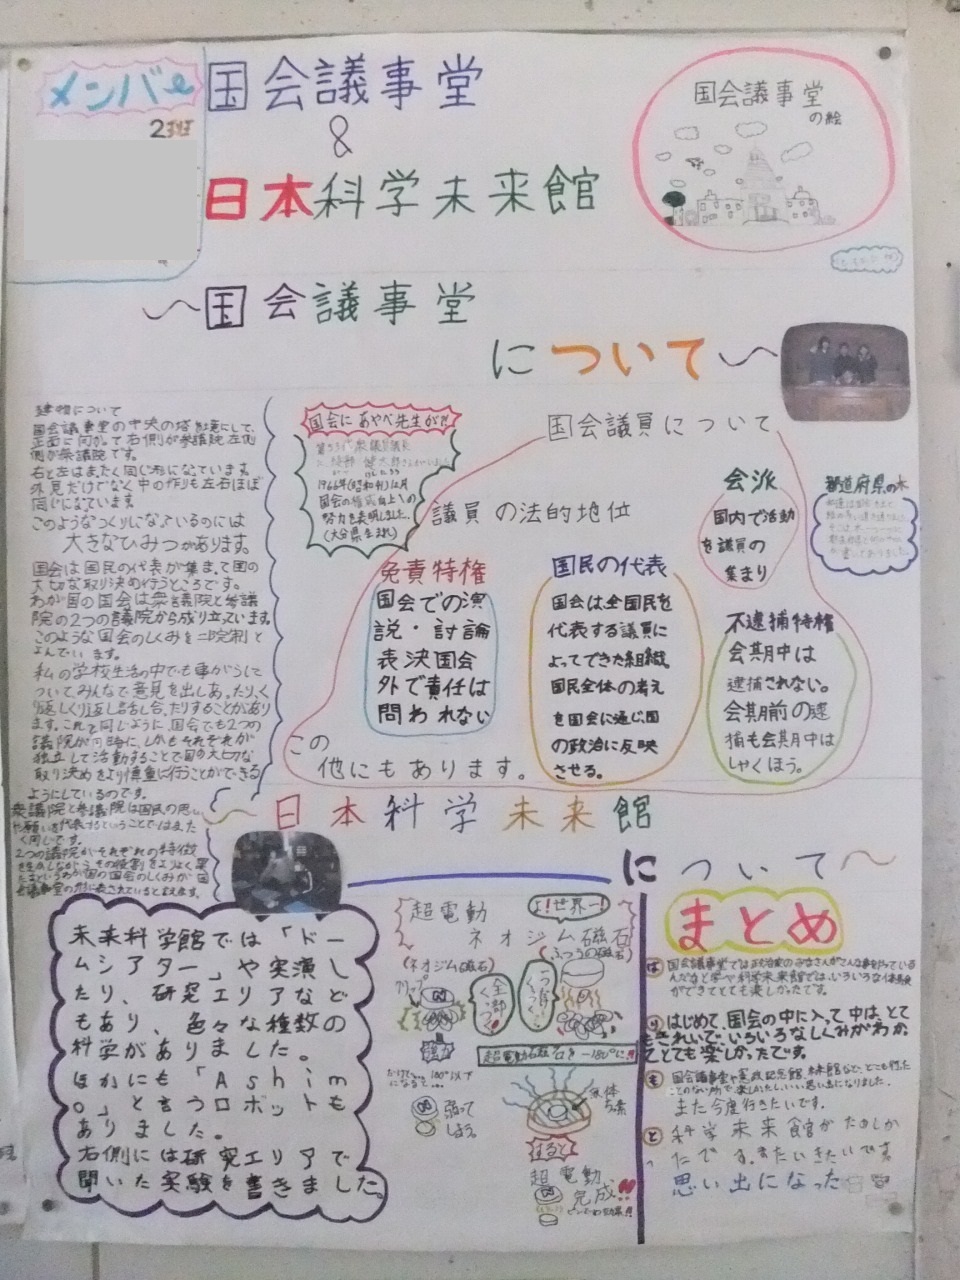 メンバー
2班
国会議事堂
&
日本科学未来館
国会議事堂
の絵
～国会議事堂
について～
建物について
国会議事堂の中央の塔を境にして、
正面に向かって右側が参議院、左側
側が衆議院です。
右と左はまったく同じ形になっています。
外見だけでなく中の作りも左右ほぼ
同じになっています。
このようなつくりになっているのには
大きなひみつがあります。
国会は国民の代表が集まって国の
大切な取り決め行うところです。
わが国の国会は衆議院と参議
院の2つの議院から成り立っています。
このような国会のしくみを二院制と
よんでいます。
私の学校生活の中でも事がらに
ついてみんなで意見を出しあったり、く
り返しくり返し話し合ったりすることがあり
ます。これと同じように、国会でも2つの
議院が同時に、しかもそれぞれが
独立して活動することで国の大切な
取り決めをより慎重に行うことができる
ようにしているのです。
衆議院と参議院は国民の思い
や願いを代表するということではまった
く同じです。
2つの議院がそれぞれの特徴
国会にあやべ先生が!!
1966年(昭和41)12月
国会の権威向上への
努力を表明しました。
(大分県生まれ)
国会議員について
議員の法的地位
免責特権
国会での演
説・討論
表決国会
外で責任は
問われない
国民の代表
国会は全国民を
代表する議員に
よってできた組織。
国民全体の考え
を国会に通じ、国
の政治に反映
させる。
会派
国内で活動
を議員の
集まり
不逮捕特権
会期中は
逮捕されない。
会期前の逮
捕も会期中は
しゃくほう。
都道府県の木
この
他にもあります。
日本科学未来館
について～
未来科学館では「ドー
ムシアター」や実演し
たり、研究エリアなど
もあり、色々な種数の
科学がありました。
ほかにも「Ashim
o」と言うロボットも
ありました。
右側には研究エリアで
聞いた実験を書きました。
超電動
よ!世界一!
ネオジム磁石
(ネオジム磁石)
(ふつうの磁石)
クリップ
全部つく!
強力
超電動磁石を-180℃に!!
弱って
しまう。
液体
ちっ素
すると
超電動
完成!!
まとめ
は
り
はじめて、国会の中に入って中は、とて
もきれいで、いろいろなしくみがわかっ
てとても楽しかったです。
も
また今度行きたいです。
と
科学未来館がたのしか
ったです。またいきたいです
思い出になった